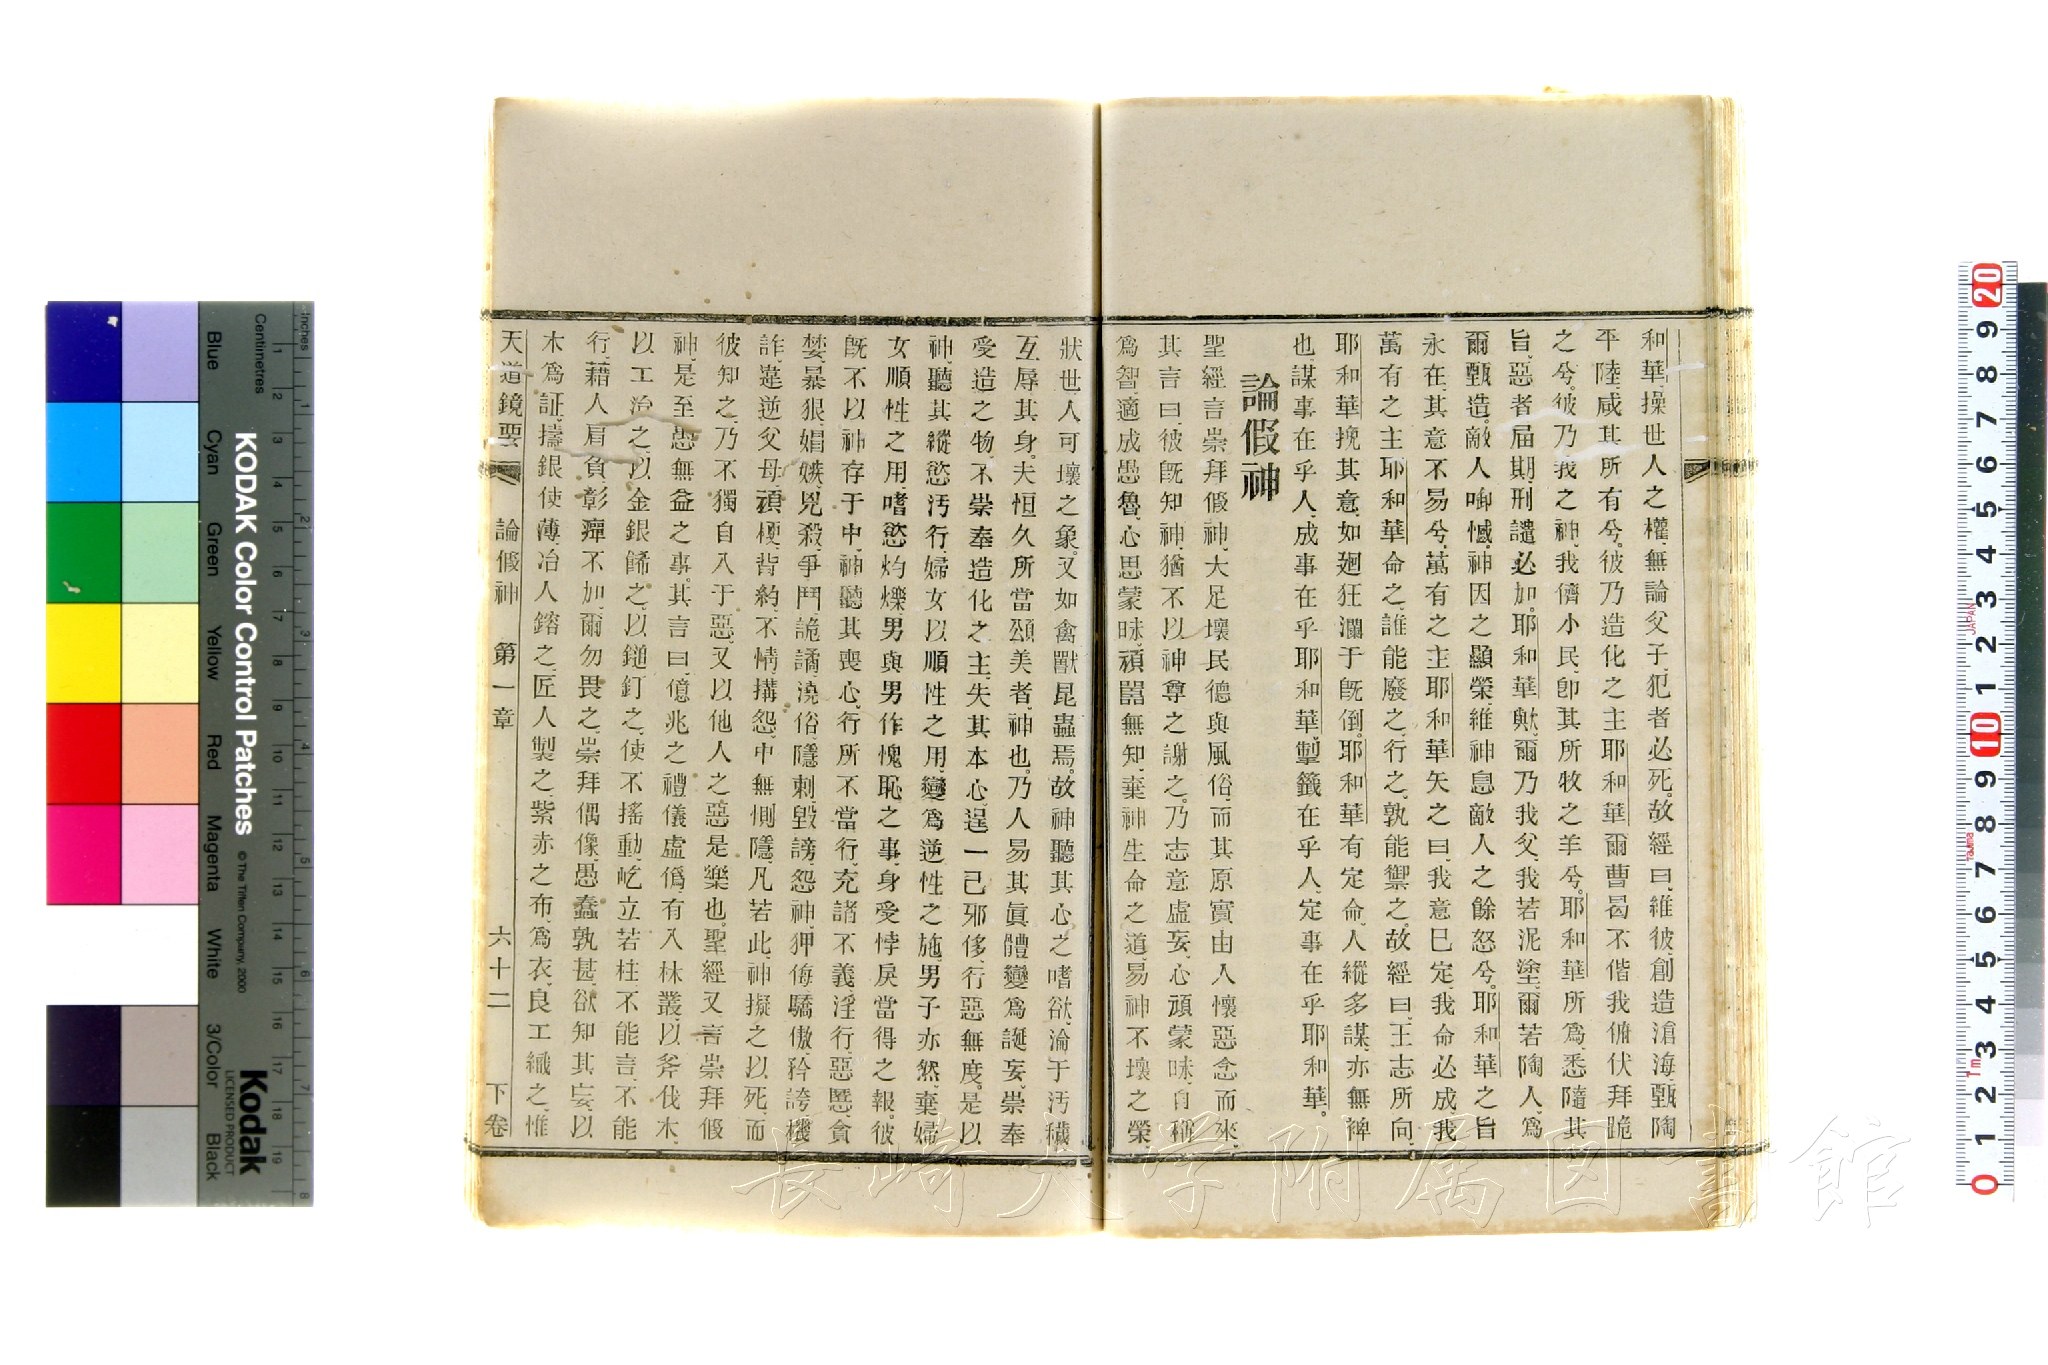 和華、操世人之權、無論父子、犯者必死。故經曰、維彼創造滄海、甄陶
平陸、咸其所有兮。彼乃造化之主耶和華、爾曹曷不偕我俯伏拜跪
之兮。彼乃我之神、我儕小民、卽其所牧之羊兮。耶和華所爲、悉隨其
旨、惡者届期、刑譴必加。耶和華歟、爾乃我父、我若泥塗、爾若陶人、爲
爾甄造。敵人啣憾、神因之顯榮、維神息敵人之餘怒兮。耶和華之旨
永在、其意不易兮、萬有之主耶和華矢之曰、我意已定、我命必成、我
萬有之主耶和華命之、誰能廢之、行之、孰能禦之。故經曰、王志所向、
耶和華挽其意、如廻狂瀾于旣倒。耶和華有定命、人縱多謀、亦無裨
也、謀事在乎人、成事在乎耶和華、掣籤在乎人、定事在乎耶和華。
論假神
聖經言崇拜假神、大足壞民德與風俗、而其原實由人懷惡念而來、
其言曰、彼旣知神、猶不以神尊之謝之。乃志意虛妄、心頑蒙昧、自稱
爲智、適成愚魯、心思蒙昧、頑嚚無知、棄神生命之道、易神不壞之榮、
狀世人可壞之象。又如禽獸昆蟲焉。故神聽其心之嗜欲、淪于汚穢、
互辱其身。夫恒久所當頌美者、神也。乃人易其眞體、變爲誕妄、崇奉
受造之物、不崇奉造化之主、失其本心、逞一己邪侈、行惡無度。是以
神聽其縱慾汚行、婦女以順性之用、變爲逆性之施、男子亦然、棄婦
女順性之用、嗜慾灼爍、男與男作愧恥之事、身受悖戾當得之報。彼
旣不以神存于中、神聽其喪心、行所不當行、充諸不義、淫行、惡慝、貪
婪、暴狠、媢嫉、兇殺、爭鬥、詭譎、澆俗、隱刺、毀謗、怨神、狎侮、驕傲、矜誇、機
詐、違逆父母、頑梗、背約、不情、搆怨、中無惻隱、凡若此、神擬之以死、而
彼知之、乃不獨自入于惡、又以他人之惡是樂也。聖經又言崇拜假
神、是至愚無益之事。其言曰、億兆之禮儀虛僞、有入林叢、以斧伐木、
以工治之、以金銀餙之、以鎚釘之、使不搖動、屹立若柱、不能言、不能
行、藉人肩負、彰癉不加、爾勿畏之、崇拜偶像、愚蠢孰甚、欲知其妄、以
木爲証、擣銀使薄、冶人鎔之、匠人製之、紫赤之布、爲衣、良工織之、惟
天道鏡要 論假神 第一章 六十二 下卷
長崎大学附属図書館
KODAK Color Control Patches
© The Tiffen Company, 2000
Kodak
LICENSED PRODUCT
Inches
Centimetres
Blue Cyan Green Yellow Red Magenta White 3/Color Black